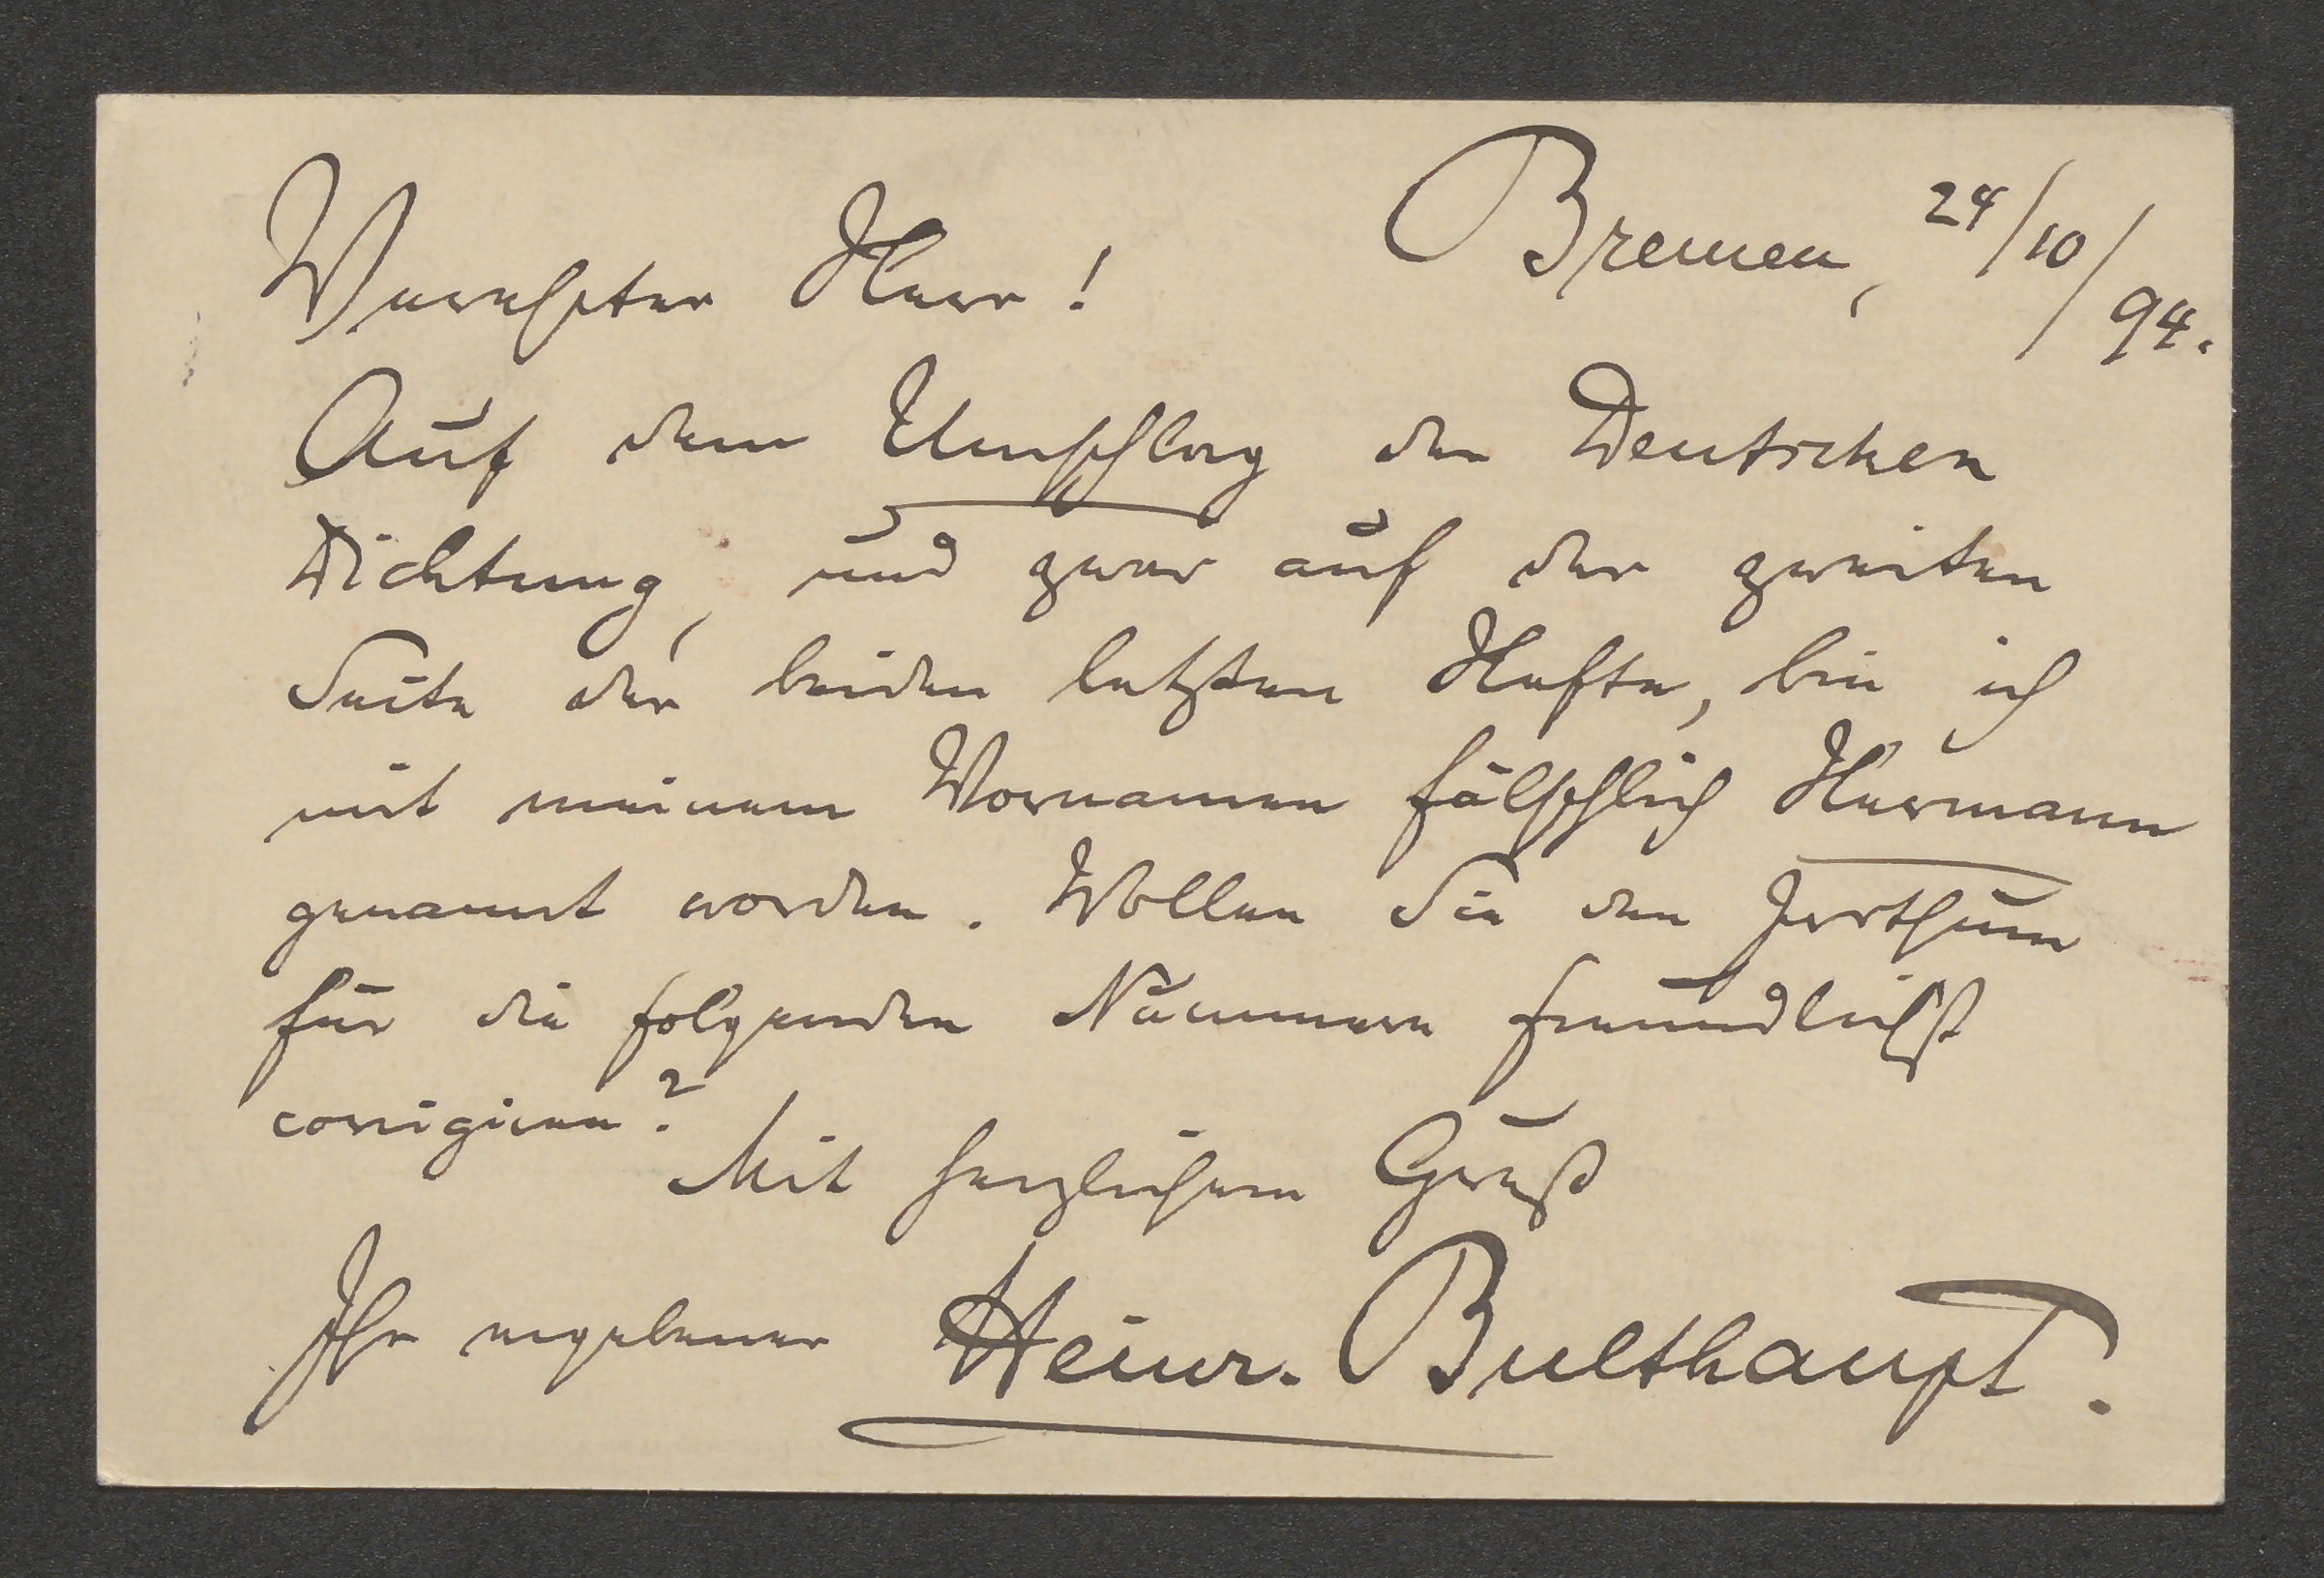 Bremen, 24/10/94.
Verehrter Herr!
Auf dem Umschlag der Deutschen
Dichtung, und zwar auf der zweiten
Seite der beiden letzten Hefte, bin ich
mit meinem Vornamen fälschlich Hermann
genannt worden. Wollen Sie den Irrthum
für die folgenden Nummern freundlichst
corrigiren?
Mit herzlichem Gruß
Ihr ergebener Heinr. Bulthaupt.